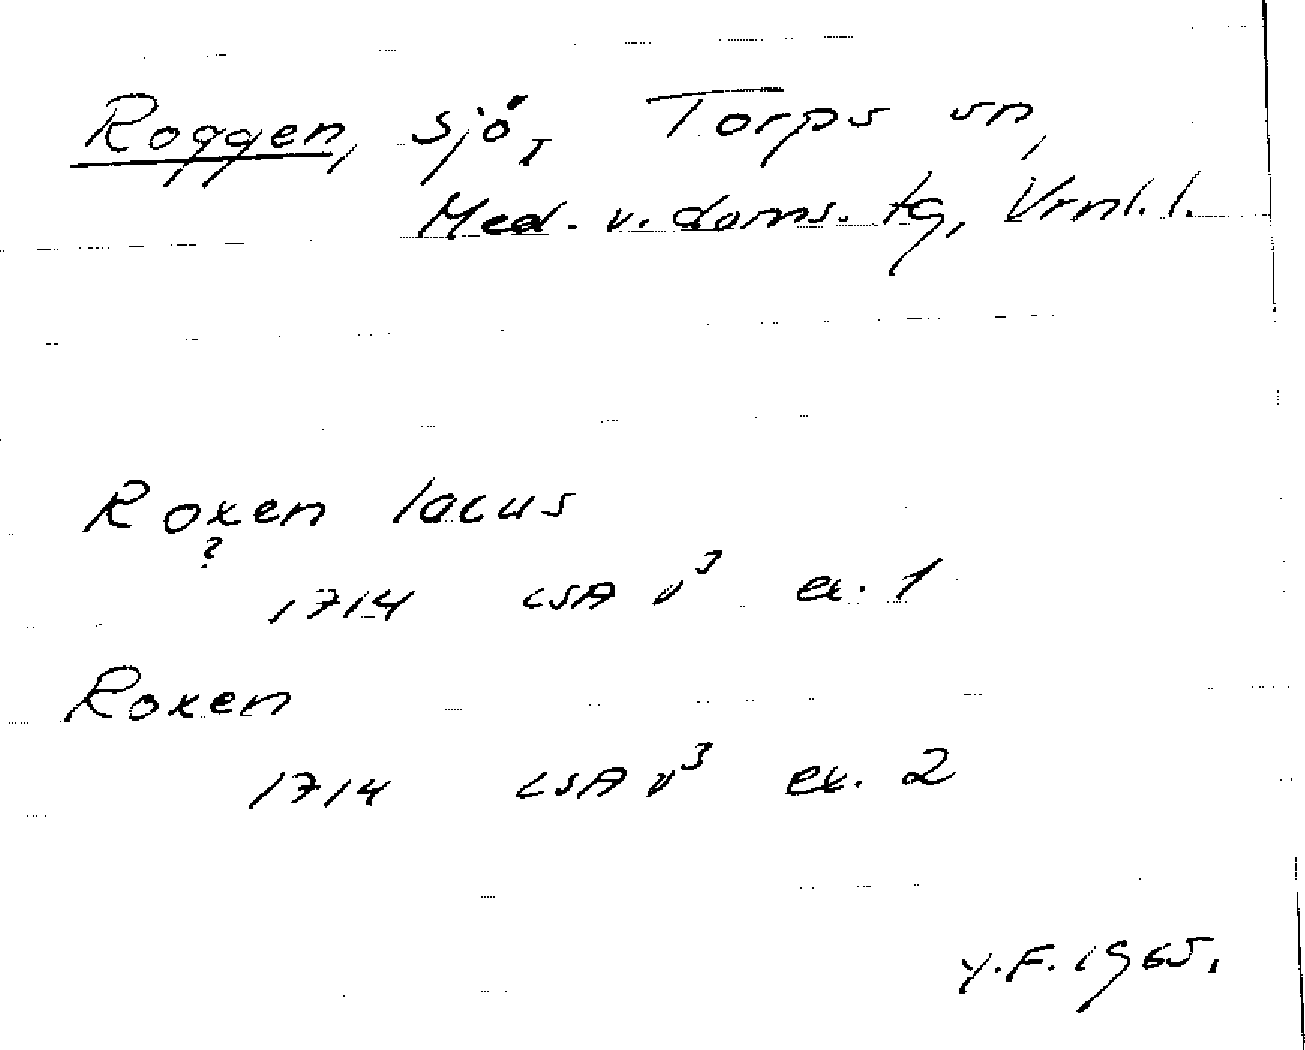 Roggen, sjö, Torps sn,
Med. v. doms. tg, Vrml. l.
Roxen lacus
?
1714 LSA v³ ex. 1
Roxen
1714 LSA v³ ex. 2
Y.F. 1965.